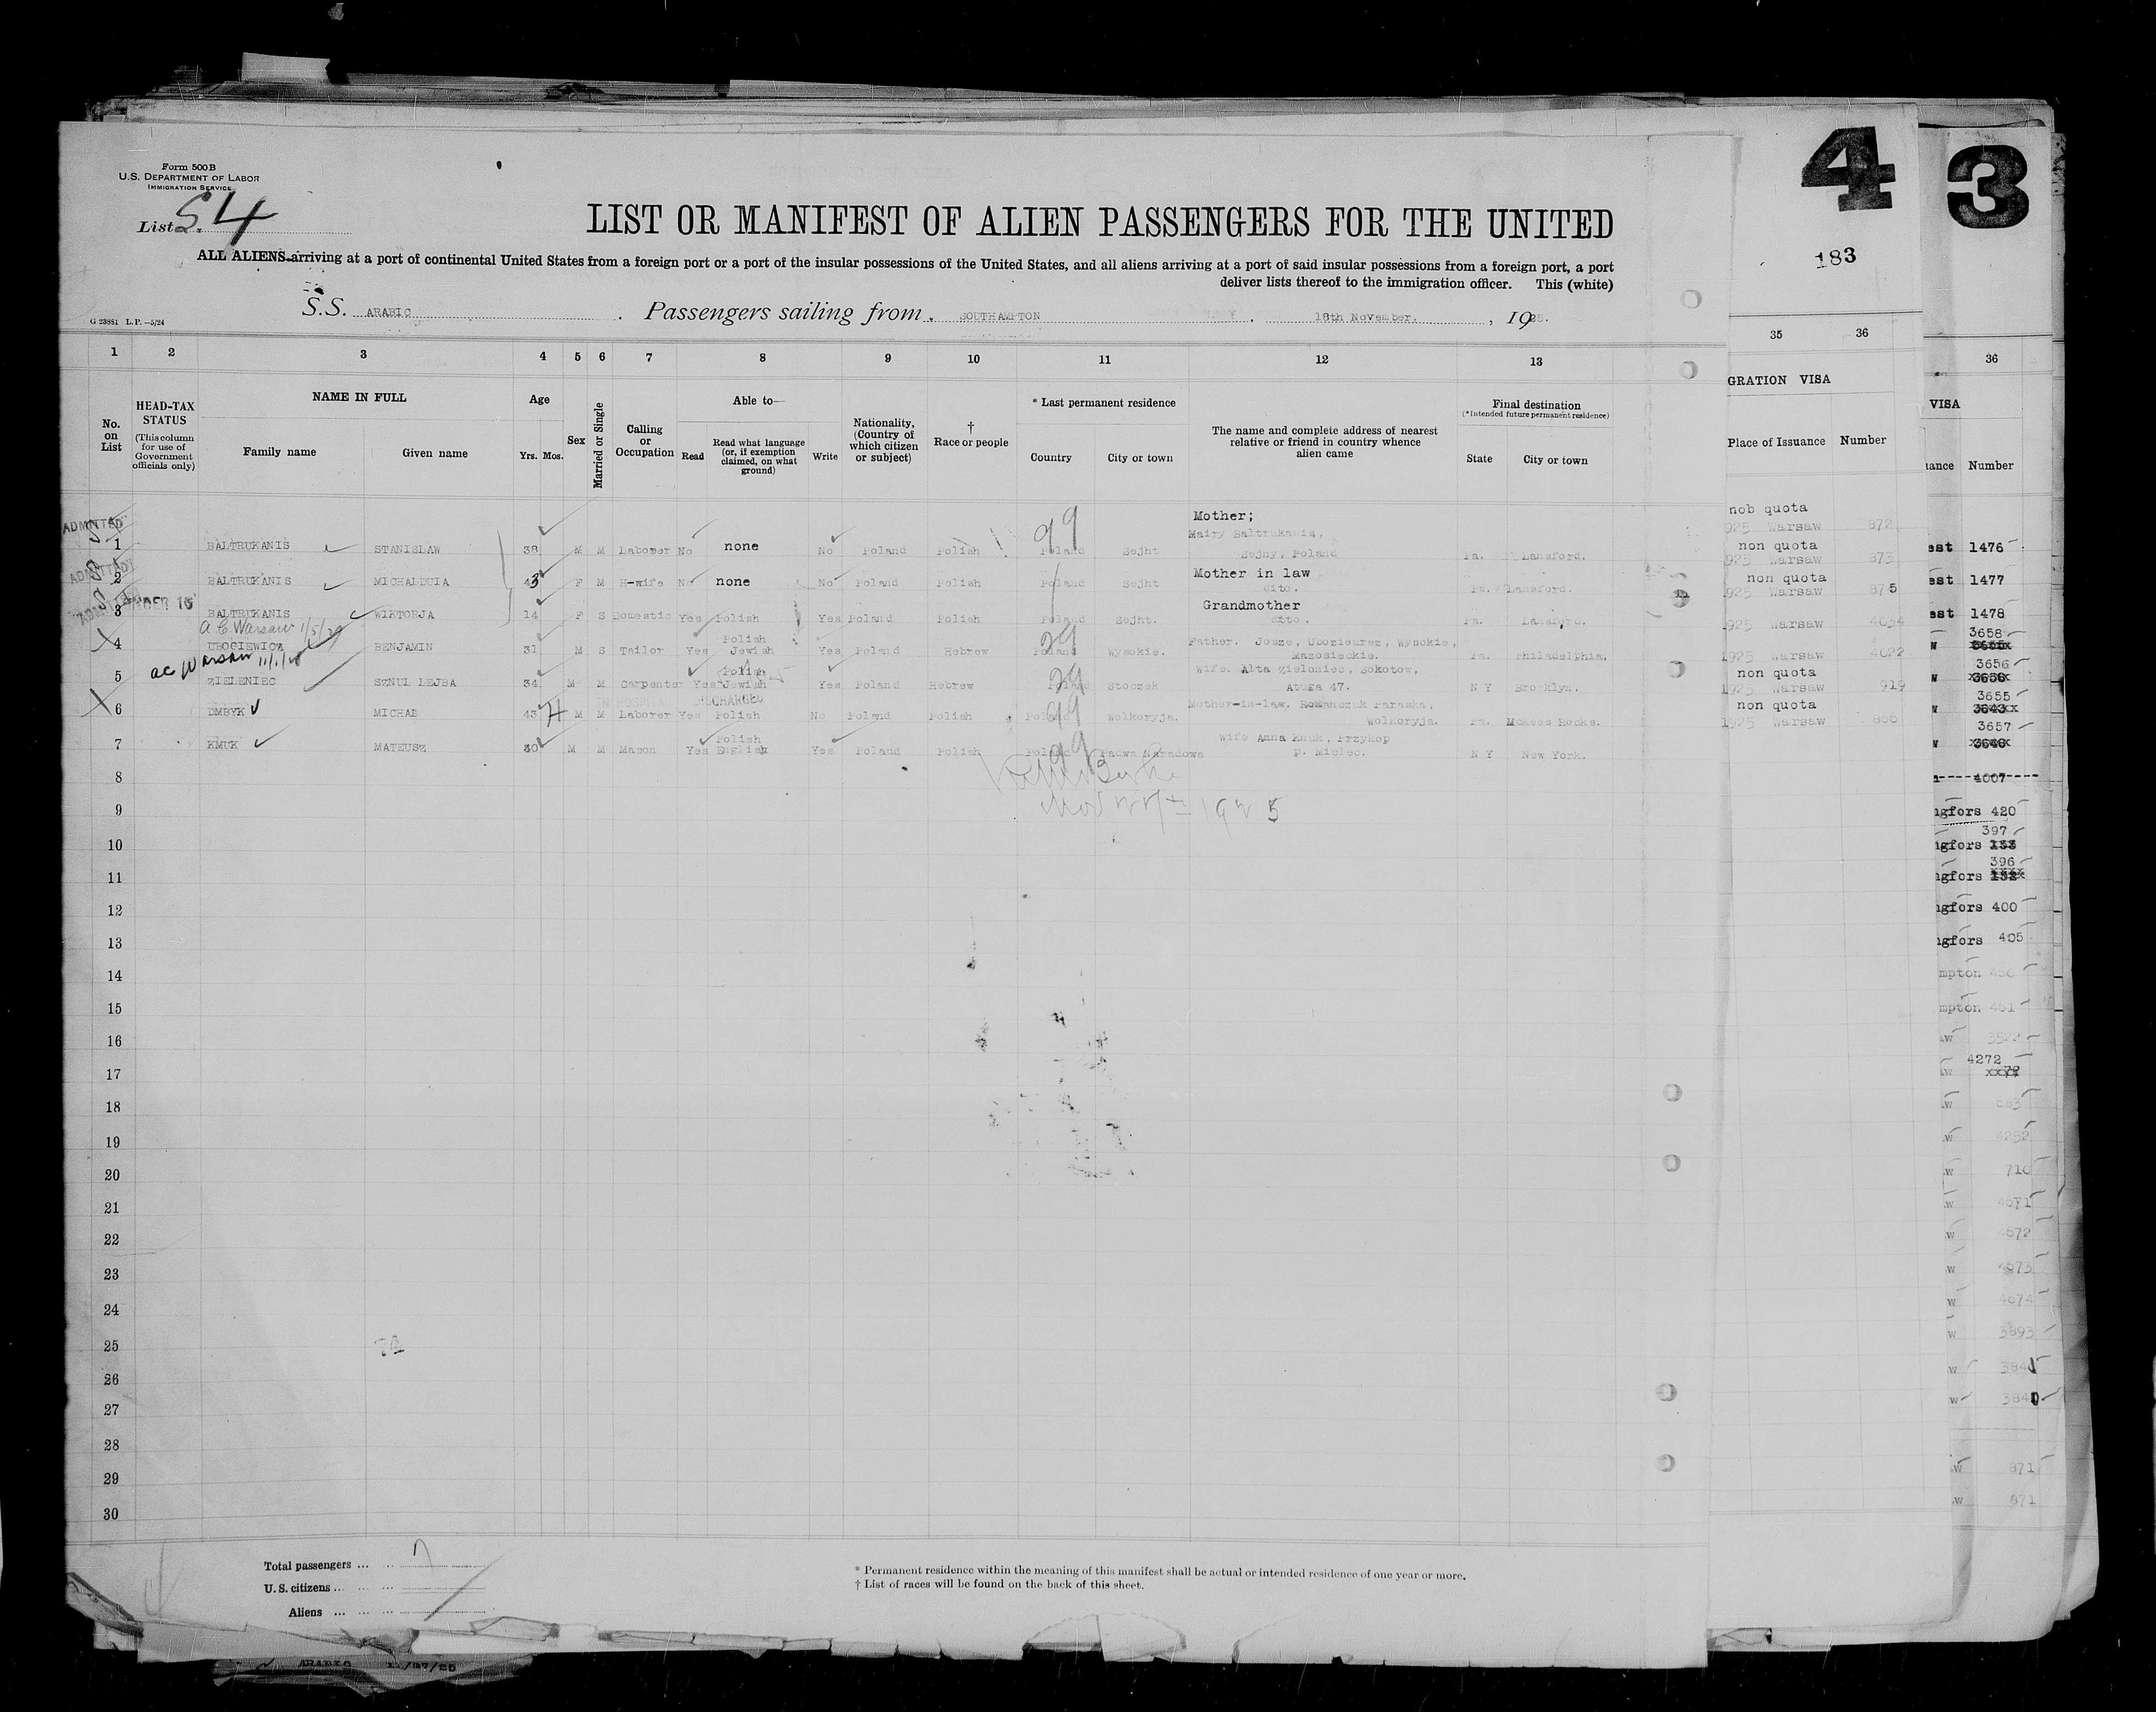 Form 500B
U.S. DEPARTMENT OF LABOR
IMMIGRATION SERVICE
List S. 4
LIST OR MANIFEST OF ALIEN PASSENGERS FOR THE UNITED
ALL ALIENS arriving at a port of continental United States from a foreign port or a port of the insular possessions of the United States, and all aliens arriving at a port of said insular possessions from a foreign port, a port
deliver lists thereof to the immigration officer. This (white)
S.S. ARABIC. Passengers sailing from SOUTHAMPTON. 18th November, 1925.
G 23881 L.P.—5/24
4
183
3
1 2 3 4 5 6 7 8 9 10 11 12 13 35 36 36
No. on List
HEAD-TAX STATUS (This column for use of Government officials only)
NAME IN FULL
Family name Given name
Age
Yrs. Mos.
Sex
Married or Single
Calling or Occupation
Able to—
Read Read what language (or, if exemption claimed, on what ground) Write
Nationality, (Country of which citizen or subject)
† Race or people
* Last permanent residence
Country City or town
The name and complete address of nearest relative or friend in country whence alien came
Final destination
(*Intended future permanent residence)
State City or town
GRATION VISA
Place of Issuance Number
VISA
Number
ADMITTED
1 BALTRUKANIS STANISLAW 38 M M Laborer No none No Poland Polish Poland Sejht Mother; Mairy Baltrukania, Sejny, Poland Pa. Lansford.
ADMITTED
2 BALTRUKANIS MICHALDUIA 43 F M H-wife No none No Poland Polish Poland Sejht Mother in law dito. Pa. Lansford.
3 BALTRUKANIS WIKTORJA 14 F S Domestic Yes Polish Yes Poland Polish Poland Sejht. Grandmother dtto. Pa. Lansford.
a C. Warsaw 1/5/29
4 UBOGIEWICZ BENJAMIN 31 M S Tailor Yes Polish Jewish Yes Poland Hebrew Poland Wysokie. Father. Josze, Ubozieurez, Wysokie, Mazosieckie. Pa. Philadelphia.
ac Warsaw
5 ZIELENIEC SZNUL LEJBA 34 M M Carpenter Yes Polish Jewish Yes Poland Hebrew Poland Stoczek Wife. Alta Zieloniec, Sokotow, Atuga 47. N Y Brooklyn.
IN HOSPITAL DISCHARGED
6 DMBYK MICHAB 43 M M Laborer Yes Polish No Poland Polish Poland Wolkoryja. Mother-in-law. Romanczuk Paraska, Wolkoryja. Pa. McKees Rocks.
7 KMUK MATEUSZ 30 M M Mason Yes Polish English Yes Poland Polish Poland Padwa Naradowa Wife Anna Kmuk, Przykop p. Mielec. N Y New York.
Nov 27th 1925
8
9
10
11
12
13
14
15
16
17
18
19
20
21
22
23
24
25
26
27
28
29
30
nob quota
925 Warsaw 872
non quota
925 Warsaw 873
non quota
925 Warsaw 875
925 Warsaw 4054
1925 Warsaw 4022
non quota
1925 Warsaw 919
non quota
1925 Warsaw 866
est 1476
est 1477
est 1478
3658
3656
3655
3657
4007
ngfors 420
397
ngfors
396
ngfors
ngfors 400
ngfors 405
mpton
mpton 451
4272
710
4671
4672
4673
4674
3893
871
871
Total passengers ... 7
U.S. citizens ...
Aliens ...
* Permanent residence within the meaning of this manifest shall be actual or intended residence of one year or more.
† List of races will be found on the back of this sheet.
ARABIC